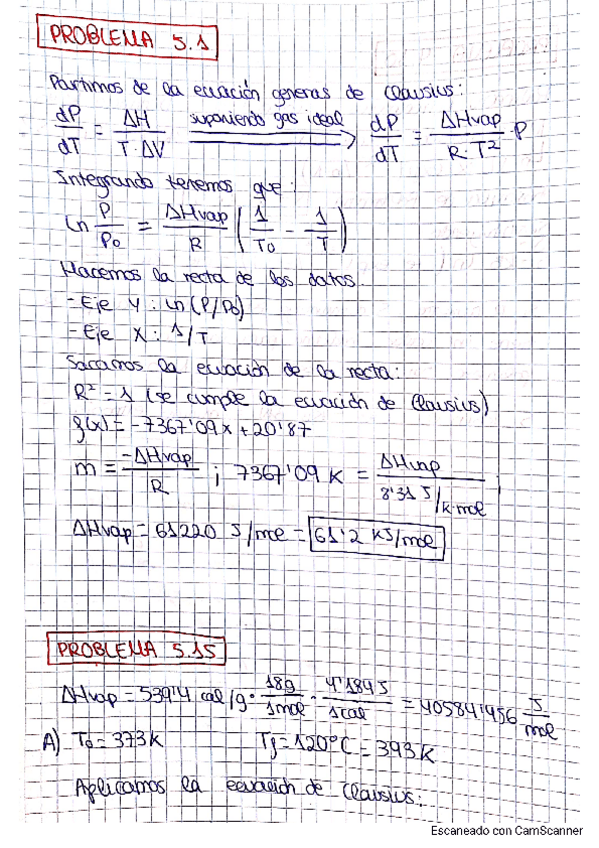 PROBLEMA 5.1
Partimos de la ecuación general de Clausius:
dP/dT = ΔH/(T ΔV) suponiendo gas ideal → dP/dT = ΔHvap/(R·T²) · P
Integrando tenemos que:
ln P/P₀ = ΔHvap/R (1/T₀ - 1/T)
Hacemos la recta de los datos
- Eje Y: ln(P/P₀)
- Eje X: 1/T
Sacamos la ecuación de la recta:
R² = 1 (se cumple la ecuación de Clausius)
f(x) = -7367'09x + 20'87
m = -ΔHvap/R ; 7367'09 K = ΔHvap/(8'31 J/K·mol) ;
ΔHvap = 61220 J/mol = 61'2 KJ/mol
PROBLEMA 5.15
ΔHvap = 539'4 cal/g · 18g/1mol · 4'184J/1cal = 40584'1456 J/mol
A) T₀ = 373K Tf = 120°C = 393K
Aplicamos la ecuación de Clausius:
Escaneado con CamScanner